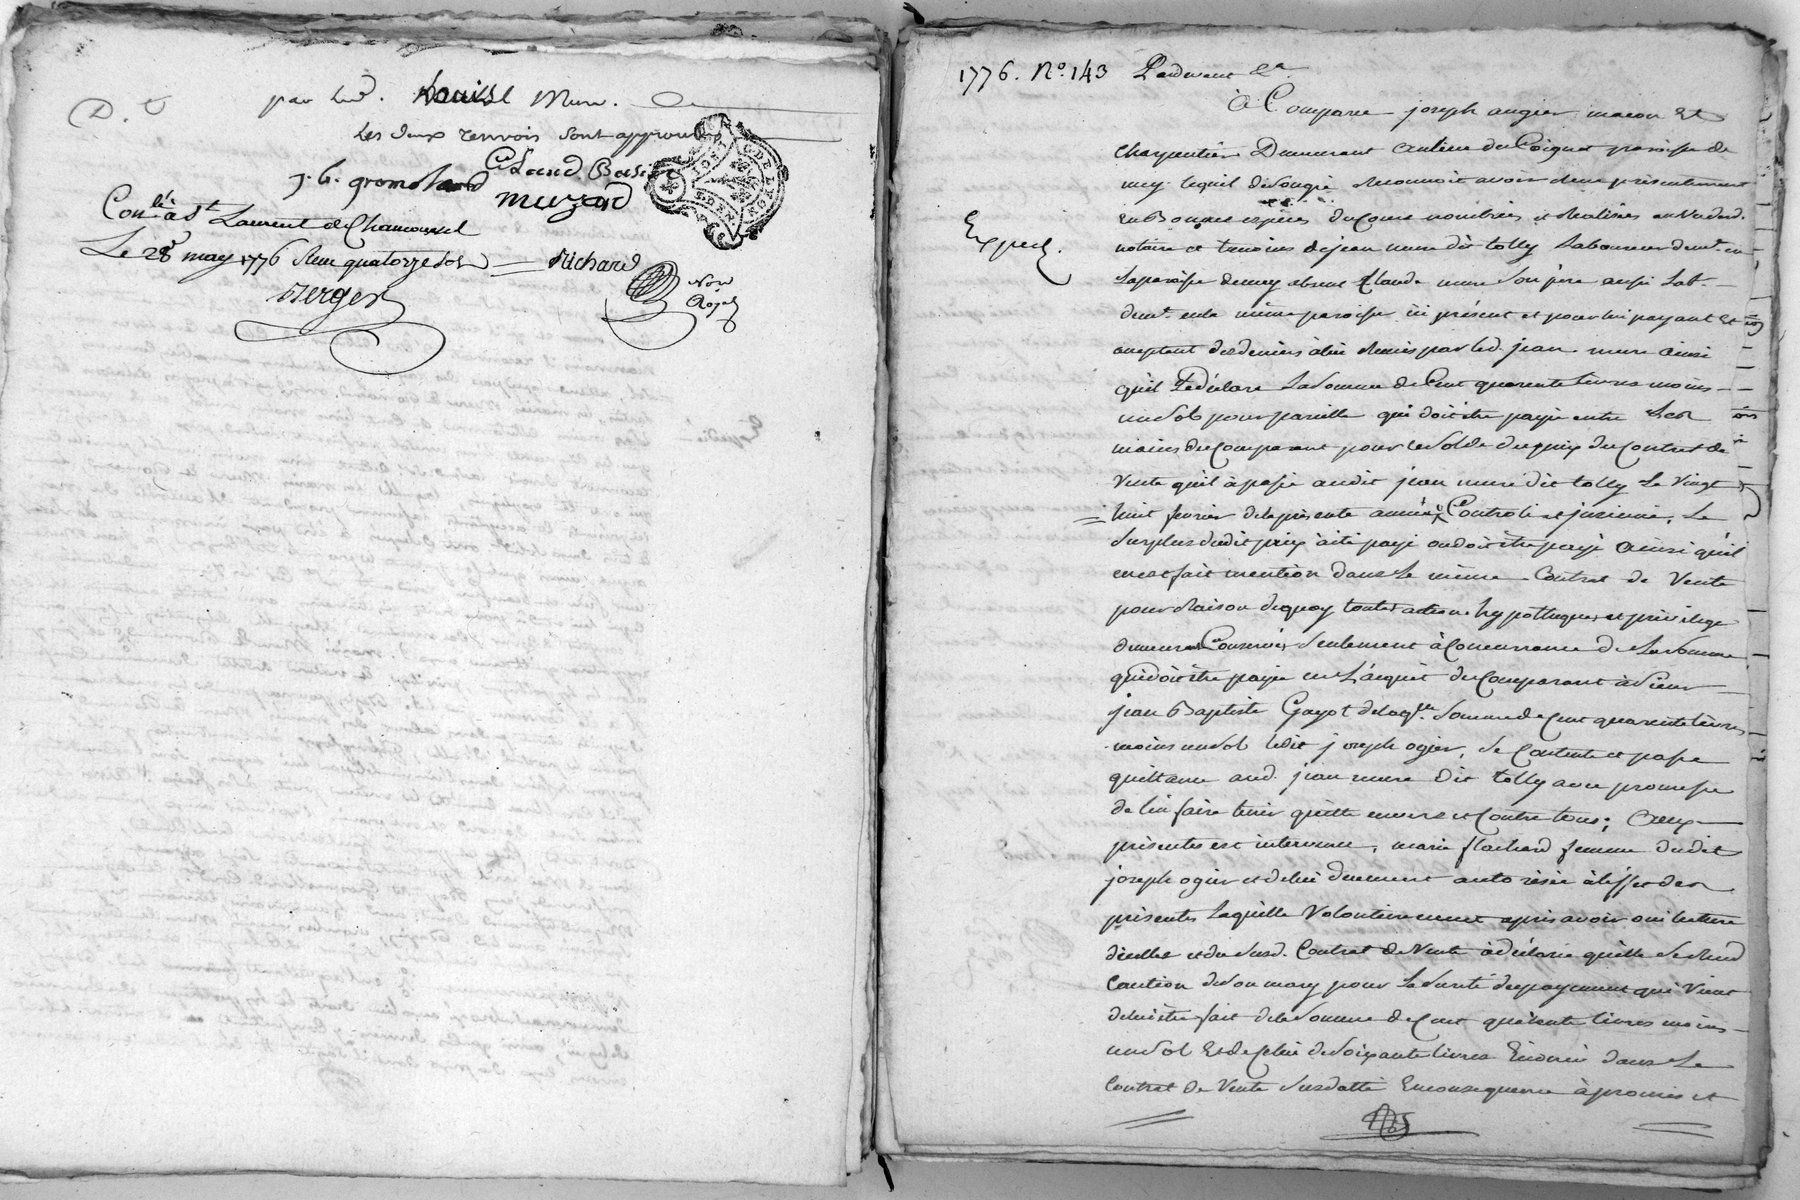 D. t
par led. Mure.
Les deux renvois sont approuvés
Claud Basset
j. b. gromolard
muzard
Conlé. à St Laurent de Chamousset
Le 28e may 1776 Reçu quatorze sols
Richard
Berger
Nore
Royal
1776. No. 143 Pardevant &a.
à Comparu joseph augier macon Et
charpentier Demeurant au lieu du Coignet paroisse de
mey. lequel de son gré Reconnoit avoir reçu présentement
Exped.
en Bonnes espèces du Cours nombrées et Réalisées au vû dud.
notaire et temoins de jean mure dit tolly Laboureur demt. en
la paroisse de mey absent Claude mure son père aussi Lab.
demt. en la même paroisse ici présent et pour lui payant Et
acceptant des deniers à lui Remis par led. jean mure ainsi
qu'il Le déclare La somme de Cent quarente livres moins
un sol pour pareille qui doit être payée entre Les
mains du Comparant pour le solde du prix du Contrat de
Vente qu'il à passé audit jean mure dit tolly le Vingt
huit fevrier de la présente année Controlé et insinué, Le
surplus dudit prix à été payé ou doit être payé ainsi qu'il
en est fait mention dans Le même Contrat de Vente
pour Raison de quoy toutes actions hypotheques et privilege
demeurent Conservés seulement à Concurrance de La somme
qui doit être payée en L'acquit du Comparant à Sieur
jean Baptiste Gayot de laqlle. somme de Cent quarente livres
moins un sol ledit joseph ogier, se Contente et passe
quittance aud. jean mure dit tolly avec promesse
de l'en faire tenir quitte envers et Contre tous; Aux
présentes est intervenue, marie flachard femme dudit
joseph ogier et de lui duement autorisée à l'effet des
présentes Laquelle Volontairement après avoir oui lecture
d'icelles et du susd. Contrat de Vente à déclaré qu'elle se Rend
Caution de son mary pour La sureté du payement qui Vient
de lui être fait de la somme de Cent quarente livres moins
un sol Et de Celui de soixante livres Enoncé dans Le
Contrat de Vente susdatté En consequence à promis et